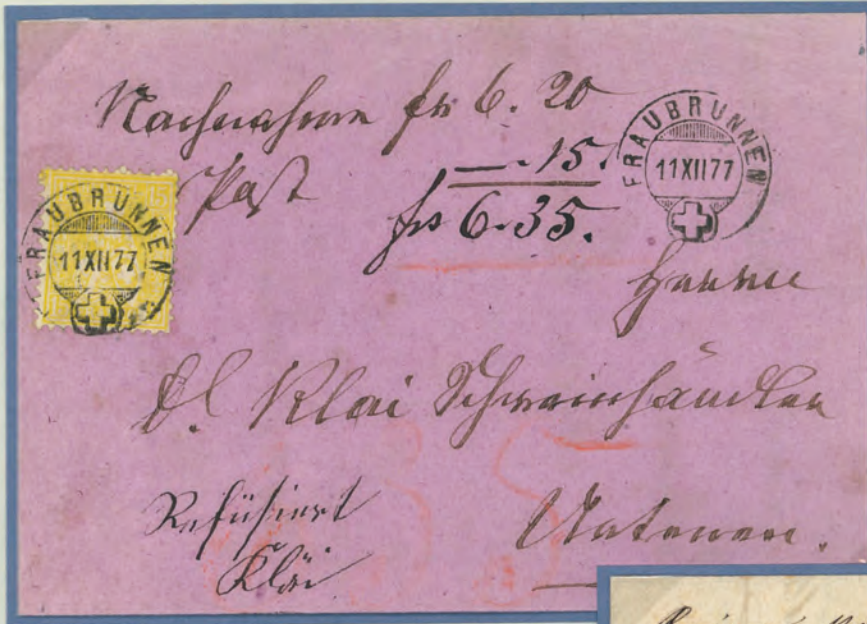 Nachnahme frs 6. 20
Post —.15.
frs 6.35.
FRAUBRUNNEN
11XII77
15
FRAUBRUNNEN
11XII77
Herrn
Kläi Schweinhändler
Refüsiert
Kläi